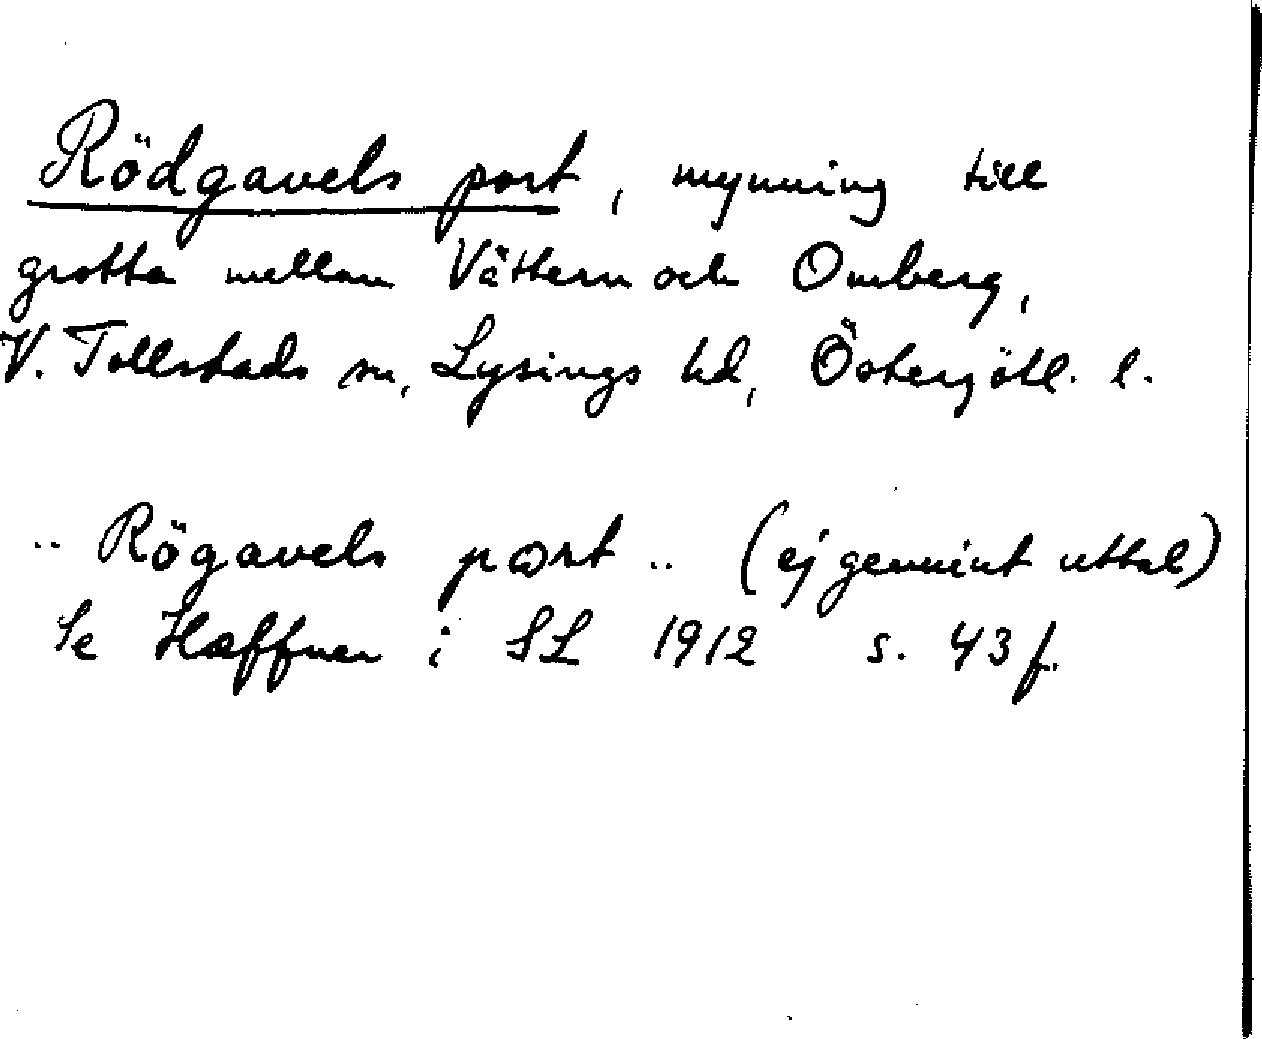 Rödgavels port, mynning till
grotta mellan Vättern och Omberg,
V. Tollstads sn, Lysings hd, Östergötl. l.
.. Rögavels pørt .. (ej genuint uttal)
Se Haffner i SL 1912 s. 43 f.